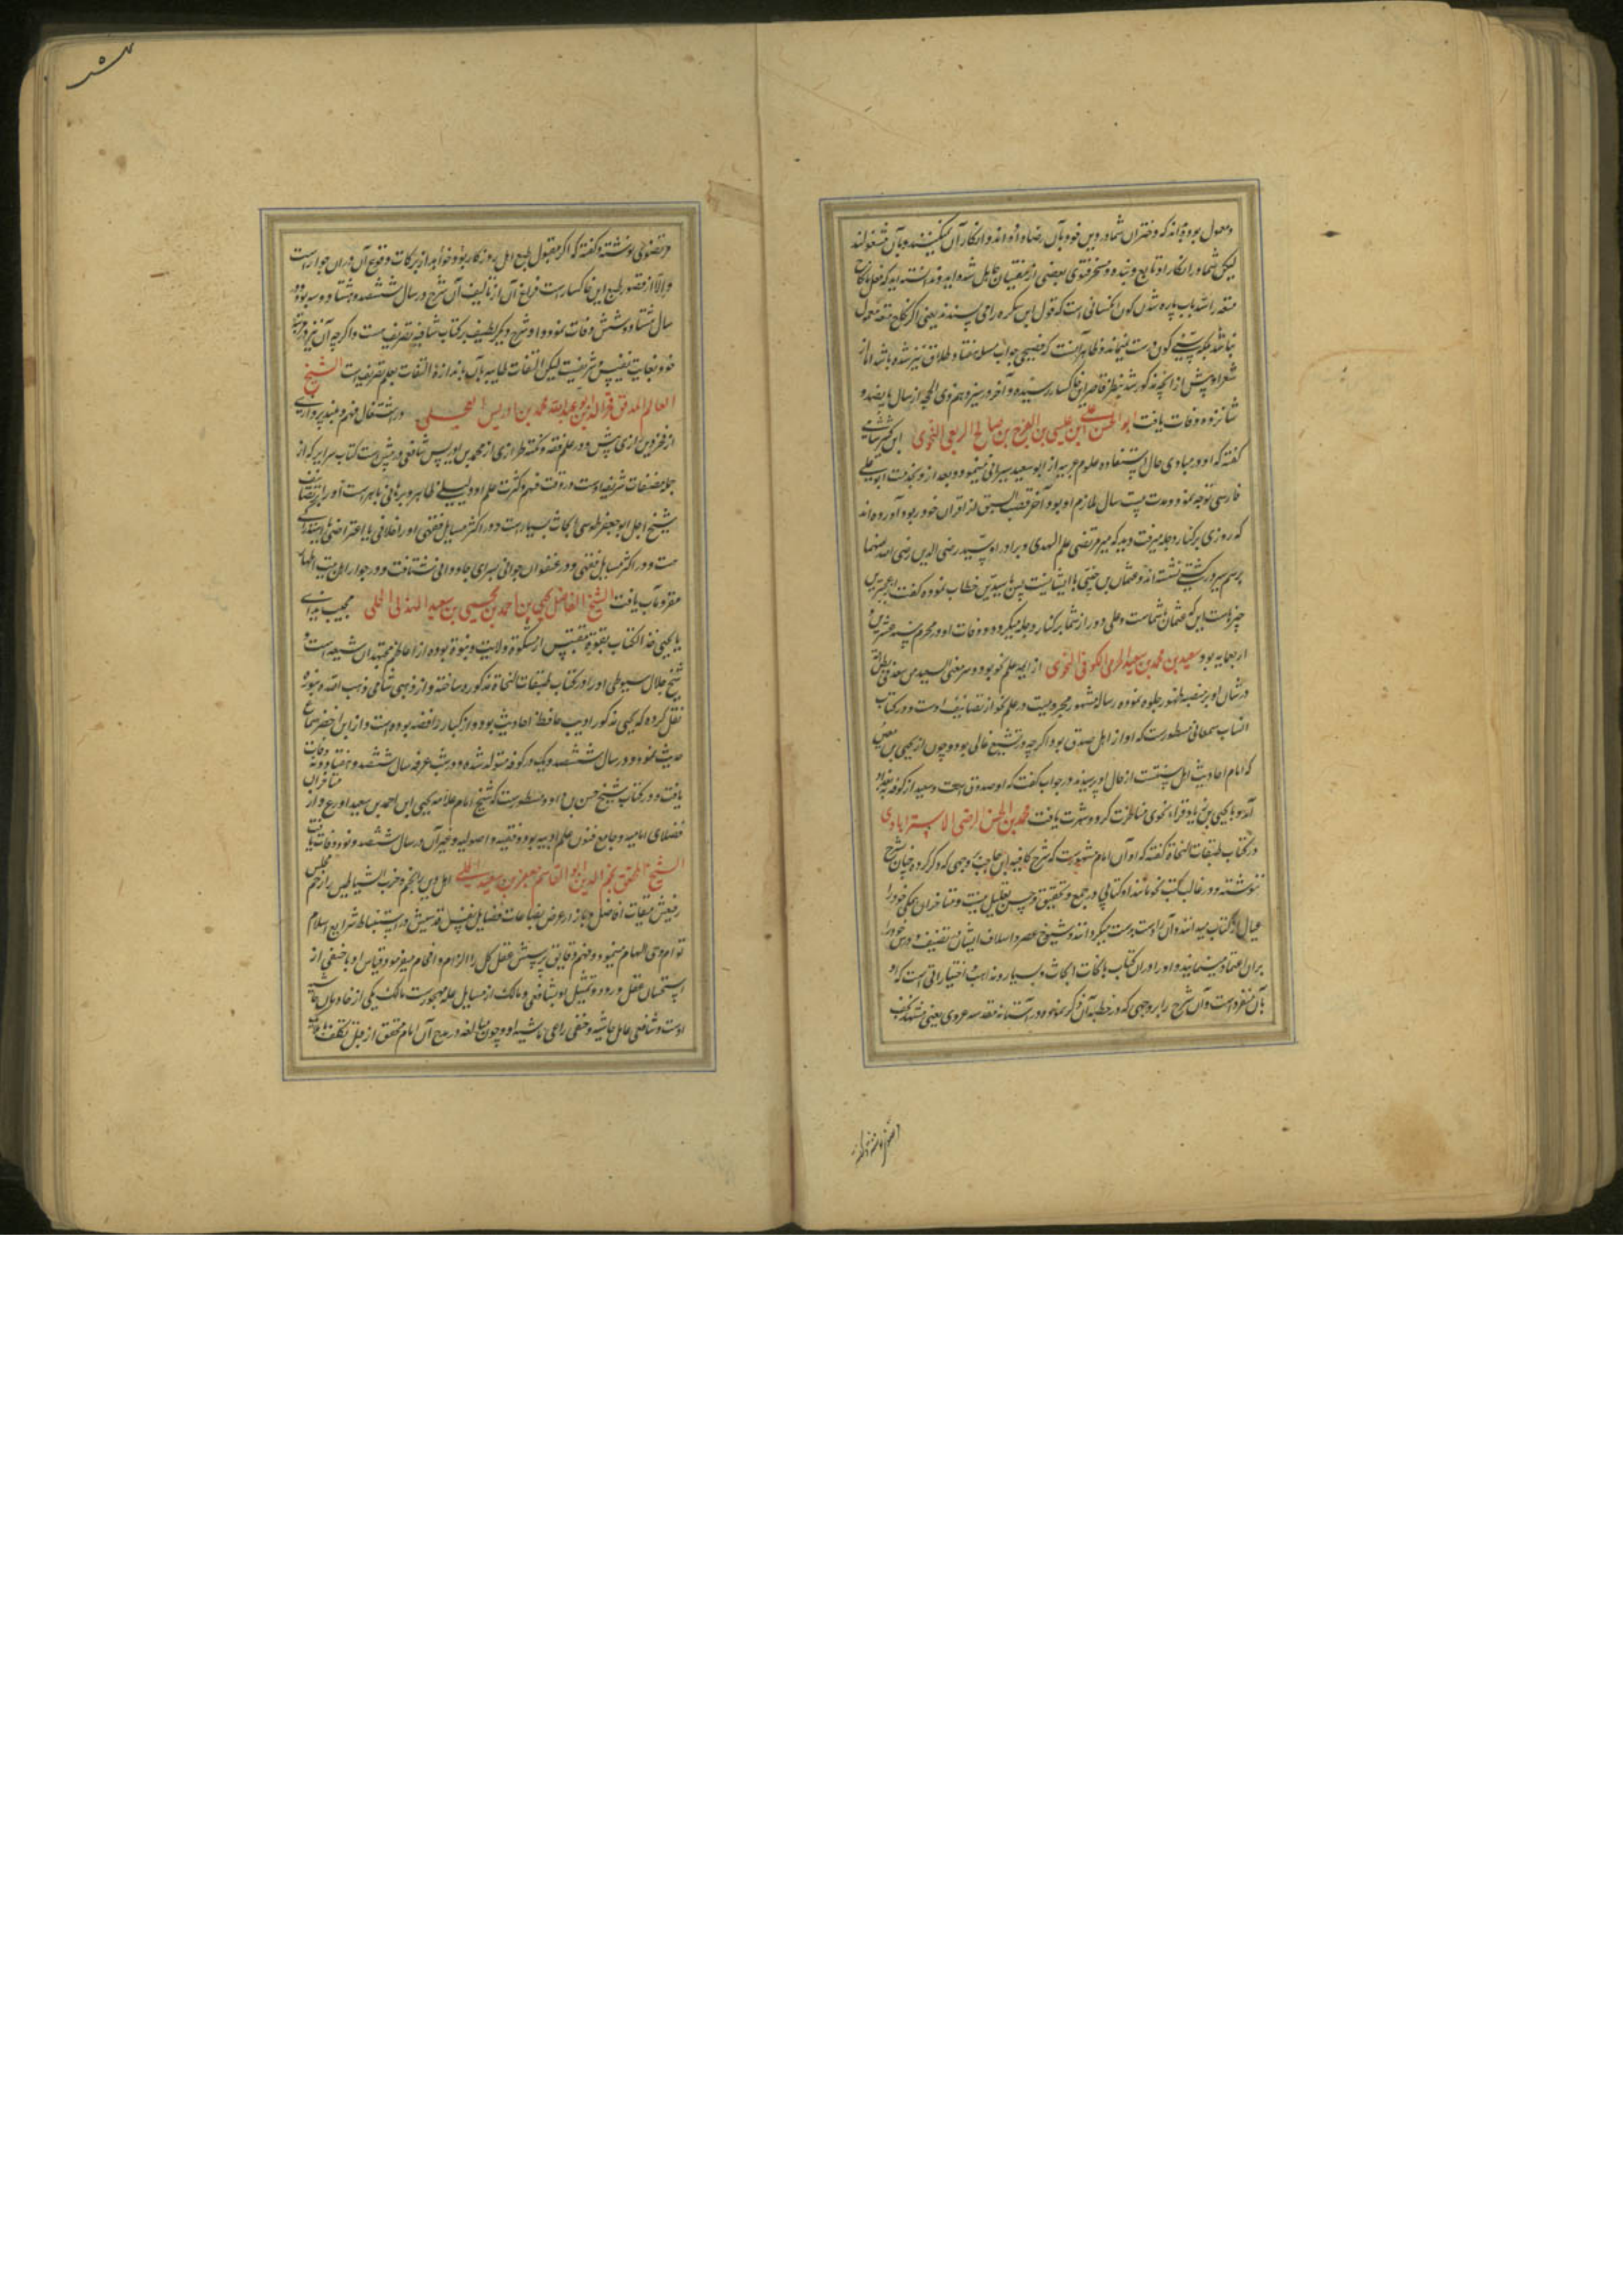 معمول بوده‌اند که دختران شما در دین خود بآن رضا داده‌اند و انکار آن نمیکنند و بآن مشغولند
لیکن شما در انکار او تابع و بنده و مسخر فتوی بعضی از مفتیان جاهل شده‌اید و ندانسته‌اید که فعل نکاح
متعه را
نباشد
شعر او پیش از آنچه مذکور شد بنظر قاصر این خاکسار نرسیده و آخر در سیزدهم ذی الحجه از سال پانصد و
شانزده وفات یافت ابو الحسن علی ابن عیسی بن الفرج بن صالح الربعی النحوی ابن کثیر شامی
گفته که او در مبادی حال استفاده علوم عربیه از ابو سعید سیرافی مینمود و بعد از او بخدمت ابو علی
فارسی توجه نمود و مدت بیست سال ملازم او بود و آخر قصب السبق از اقران خود ربود آورده‌اند
که روزی بر کنار دجله میرفت دید که میر مرتضی علم الهدی و برادر او سید رضی الدین رضی الله عنهما
برسم سیر در کشتی نشسته‌اند و عثمان بن جنی با ایشانست پس با سیدین خطاب نموده گفت از عجبترین
چیزهاست این که عثمان با شماست و علی دور از شما بر کنار دجله میگردد و وفات او در محرم سنه عشرین و
اربعمایه بود سعید بن محمد بن سعید الجرمی الکوفی النحوی از ایمه علم نحو بود و سر معنی السعید من سعد فی بطن امه
در شان او بر منصه ظهور جلوه نموده رساله مشهور بجرمیت در علم نحو از تصانیف اوست و در کتاب
انساب سمعانی مسطورست که او از اهل صدق بود اگرچه در تشیع غالی بود و چون از یحیی بن معین
که امام احادیث اهل سنتست از حال او پرسیدند در جواب گفت که او صدوق است و سعید از کوفه ببغداد
آمد و با یحیی بن زیاد فراء نحوی مناظرت کرد و شهرت یافت محمد بن الحسن الرضی الاسترابادی
در کتاب طبقات النحاة گفته که او آن امام مشهورست که شرح کافیه ابن حاجب بر وجهی که ذکر کرده چنان شرح
ننوشته و در غالب کتب نحو مانند او کتابی در جمع و تحقیق و حسن تعلیل نیست و متاخران همگی خود را
عیال آن کتاب میدانند و آن را دست بدست میگردانند و شیوخ عصر و اسلاف ایشان در تصنیف و درس خود را
بران اعتماد مینمایند و او را در آن کتاب با نحات ابحاث بسیار و مذاهب و اختیاراتی است که او
بآن منفرد است و آن شرح را بر وجهی که در خطبه آن ذکر نموده در آستانه مقدسه غروی یعنی مشهد نجف
مرتضوی نوشته و گفته که اگر مقبول طبع اهل روزگار بود خواهد از برکات وقوع آن در آن جوار است
والا از قصور طبع این خاکسارست فراغ آن از تالیف آن شرح در سال ششصد و هشتاد و سه بوده و در
سال هشتاد و شش وفات نمود و او شرح دیگر لطیف بر کتاب شافیه تصریف هست و اگرچه آن نیز در مرتبه
خود بغایت نفیس و شریفست لیکن التفات طلبه بآن باندازه التفات بعلم تصریفست الشیخ
العالم المدقق فخر الدین ابو عبد الله محمد بن ادریس العجلی در اشتعال فهم و بلند پروازی
از فخر الدین رازی پیش و در علم فقه و نکته طرازی از محمد بن ادریس شافعی در پیش است کتاب سرایر که از
جمله مصنفات شریفه اوست در دقت فهم و کثرت علم او دلیلی ظاهر و برهانی باهر است او را بر تصانیف
شیخ اجل ابو جعفر طوسی ابحاث بسیارست و در اکثر مسایل فقهی او را خلافی یا اعتراضی یا استدراکی
هست و در اکثر مسایل فقهی و در عنفوان جوانی بسرای جاودانی شتافت و در جوار اهل بیت اطهار
مقر و مآب یافت الشیخ الفاضل یحیی بن احمد بن یحیی بن سعید الهذلی الحلی مجیب ندای
یا یحیی خذ الکتاب بقوة مقتبس از مشکوة ولایت و نبوة بوده از اعاظم مجتهدان شیعه است و
شیخ جلال سیوطی او را در کتاب طبقات النحاة مذکور ساخته و از ذهبی شامی ذهب الله بنوره
نقل کرده که یحیی مذکور ادیب حافظ احادیث بود و از کبار رافضه بوده است و از ابن اخضر سماع
حدیث نمود و در سال ششصد و یک در کوفه متولد شده و در شب عرفه سال ششصد و هشتاد و نه وفات
یافت و در کتاب شیخ حسن بن داود مسطورست که شیخ امام علامه یحیی ابن احمد بن سعید اورع و از متاخران
فضلای امامیه و جامع فنون علم ادبیه بود و فقیه و اصولیه و غیر آن در سال ششصد و نود وفات یافت
الشیخ المحقق نجم الدین ابو القاسم جعفر بن سعید الحلی اهل دین را نجم و حزب الشیاطین را رجم مجلس
رفیعش میقات افاضل و بازار عرض بضاعات فضایل نفس قدسیش در استنباط شرایع اسلام
توام وحی و الهام مینمود و فهم دقایق پرستش عقل کل را الزام و افحام میفرمود قیاس او با حنفی از
استحسان عقل دور و تمثیل او بشافعی و مالک از مسایل جمله مهجورست مالک یکی از خادمان
اوست و شافعی حامل غاشیه و حنفی راعی ماشیه او و چون مبالغه در مدح آن امام محقق از قبیل تکلف